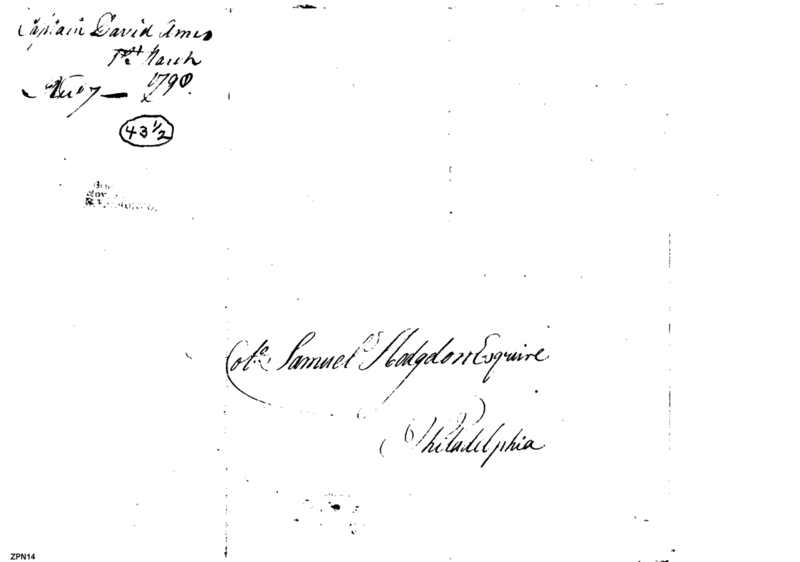 Captain David Ames
1st March
1790.
43 1/2
Colo. Samuel Hodgdon Esquire
Philadelphia
ZPN14